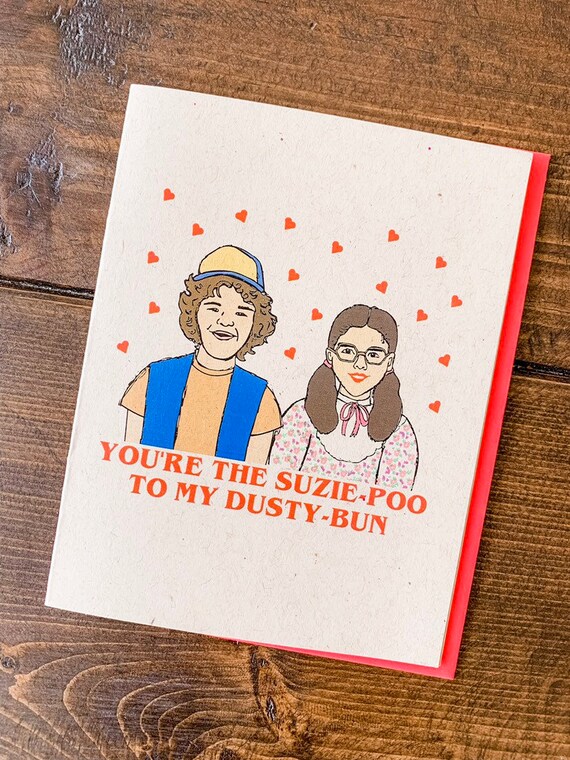 YOU'RE THE SUZIE-POO
TO MY DUSTY-BUN